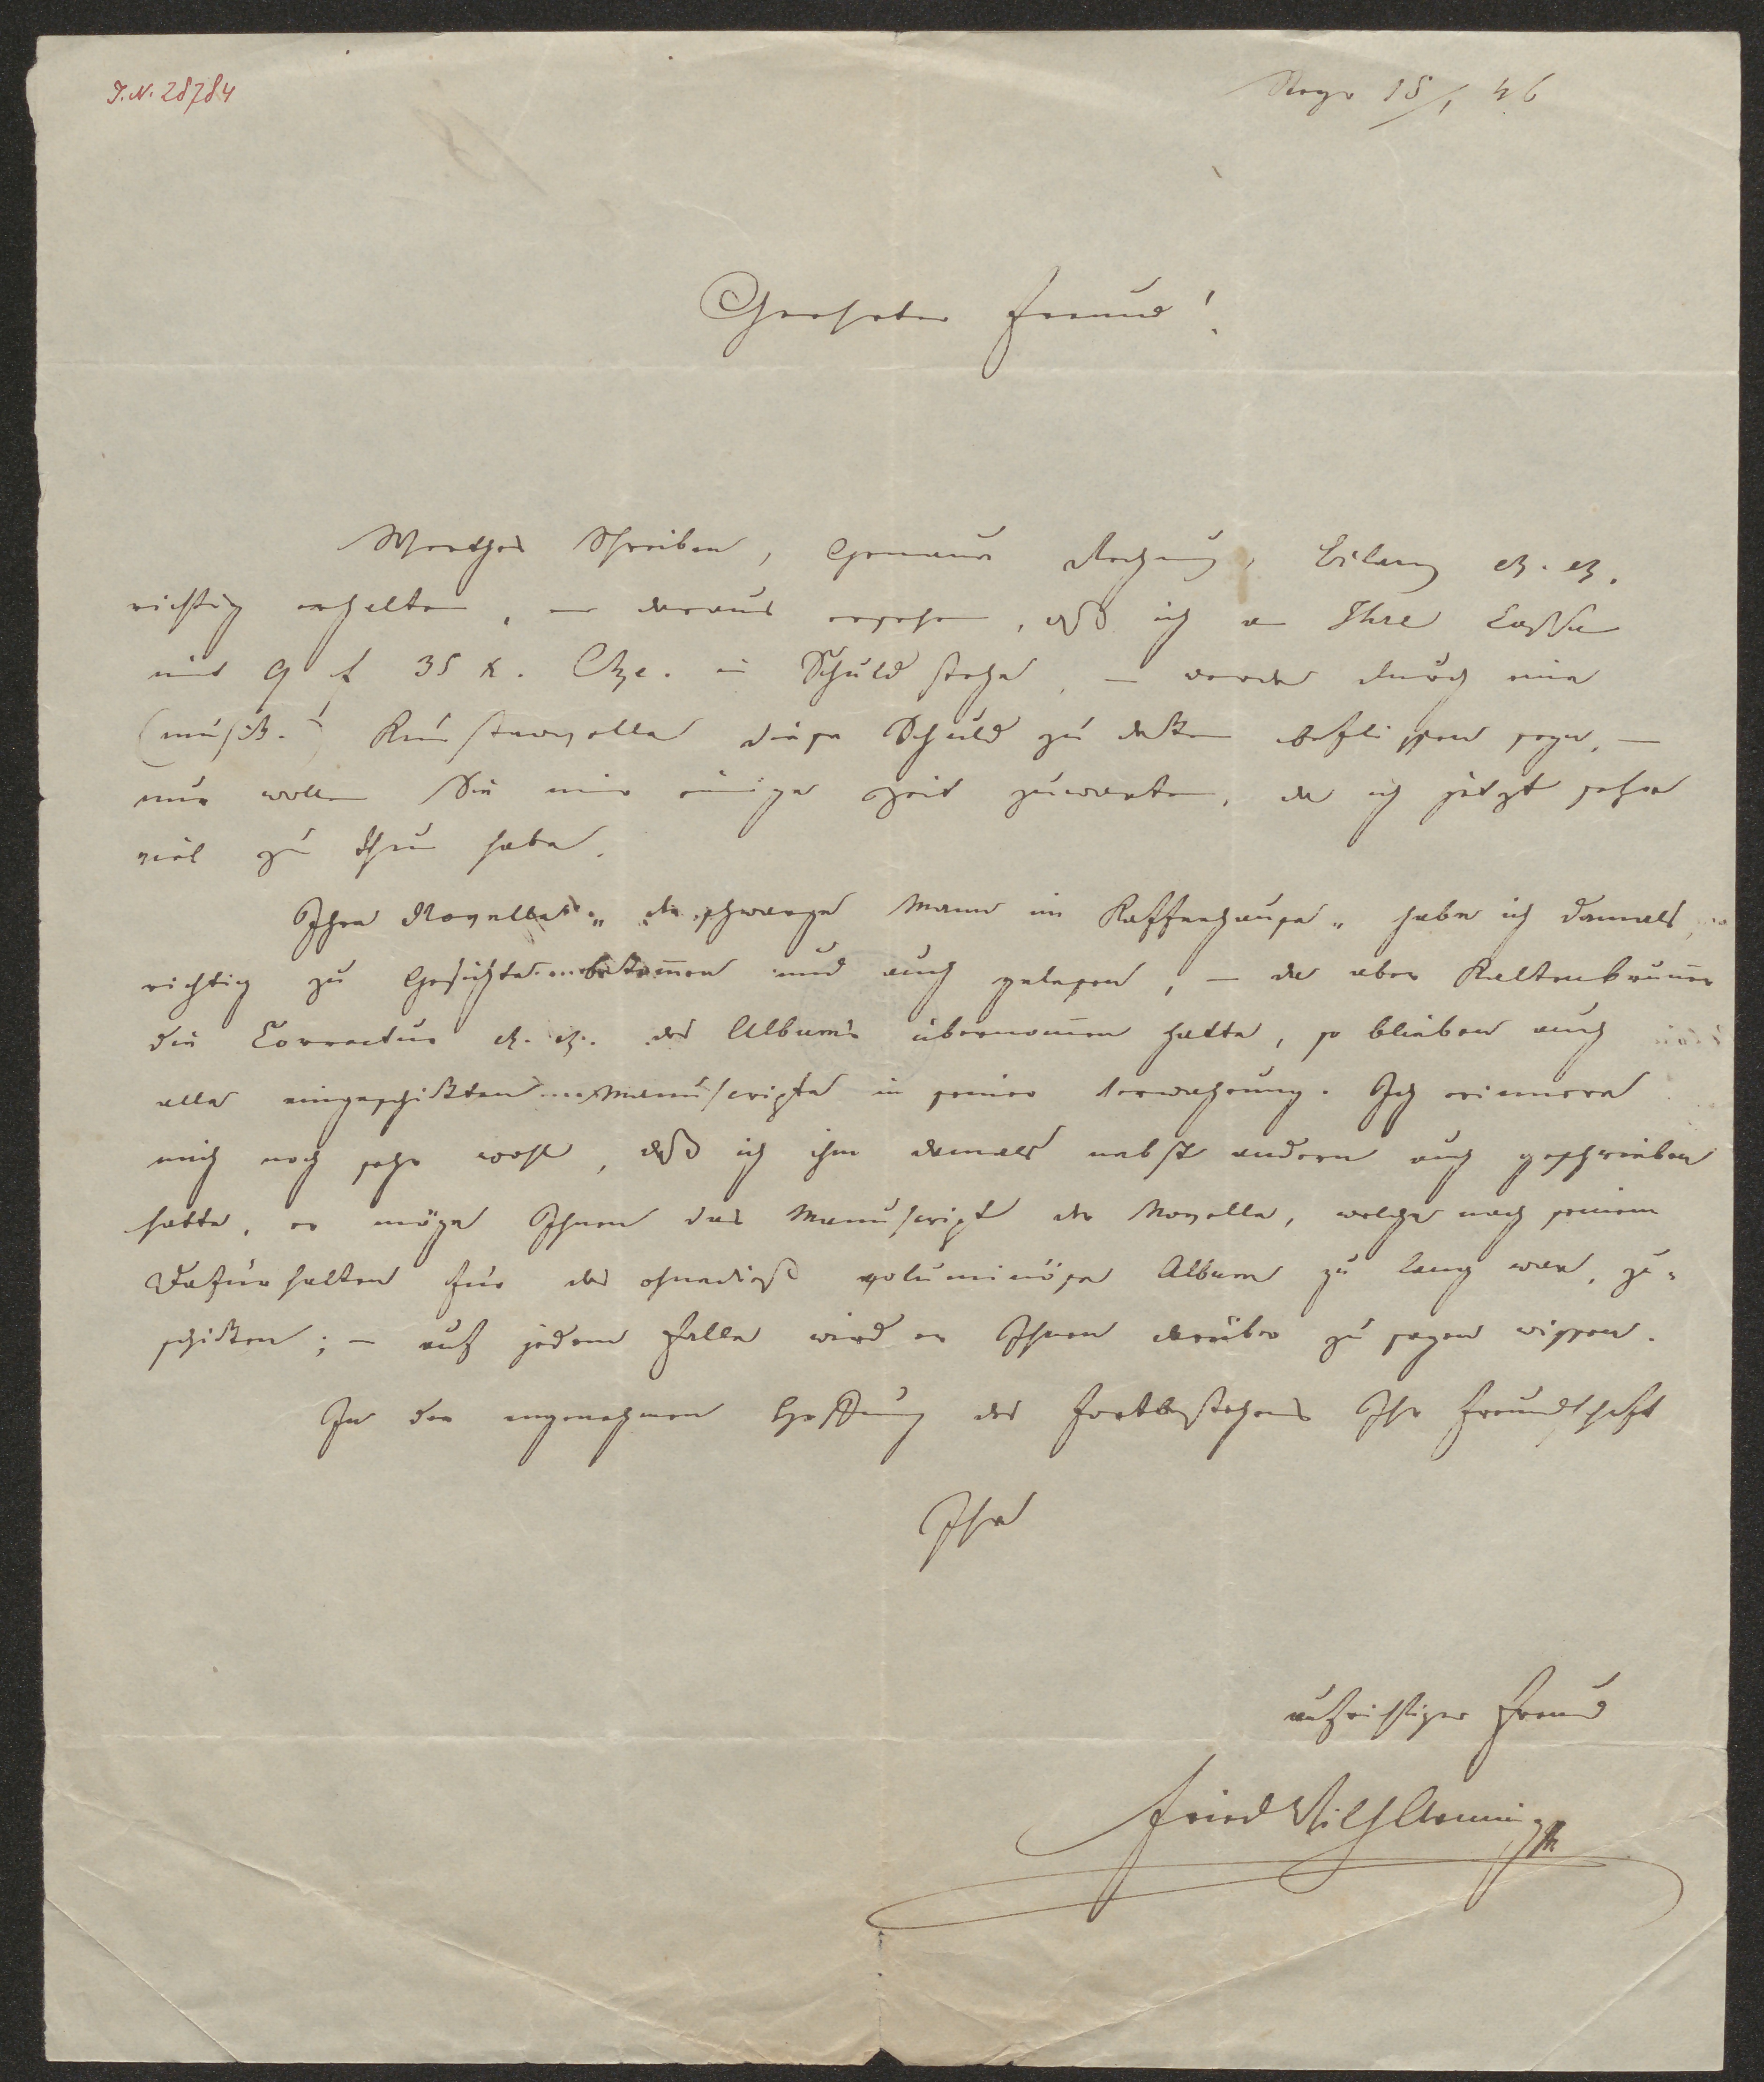 I.N. 28784
Steyr 15/1 46
Geehrter Freund!
Werthes Schreiben, Genaue Rechnung, Bilanz etz. etz.
richtig erhalten, – daraus ersehen, daß ich an Ihre Cassa
mit 9 f 35 x. in Schuld stehe, – werde durch eine
(musik.) Künstlernovelle diese Schuld zu decken beflissen seyn, –
nur wollen Sie mir einige Zeit zuwarten, da ich jetzt sehr
viel zu thun habe.
Ihre Novelle „der schwarze Mann im Kaffeehause" habe ich damals
richtig zu Gesichte bekom̅en und auch gelesen, – da aber Kaltenbrun̅er
die Correctur etz. etz. des Albums übernom̅en hatte, so blieben auch
alle eingeschickten Manuscripte in seiner Verwahrung. Ich erinnere
mich noch sehr wohl, daß ich ihm damals nebst andern auch geschrieben
hatte, er möge Ihnen das Manuscript der Novelle, welche nach seinem
Dafürhalten für das ohnedieß voluminöse Album zu lang war, zu-
schicken; – auf jedem Falle wird er Ihnen darüber zu sagen wissen.
In der angenehmen Hoffnung des Fortbestehens Ihr Freundschaft
Ihr
aufrichtiger Freund
Fried Wilh Arming